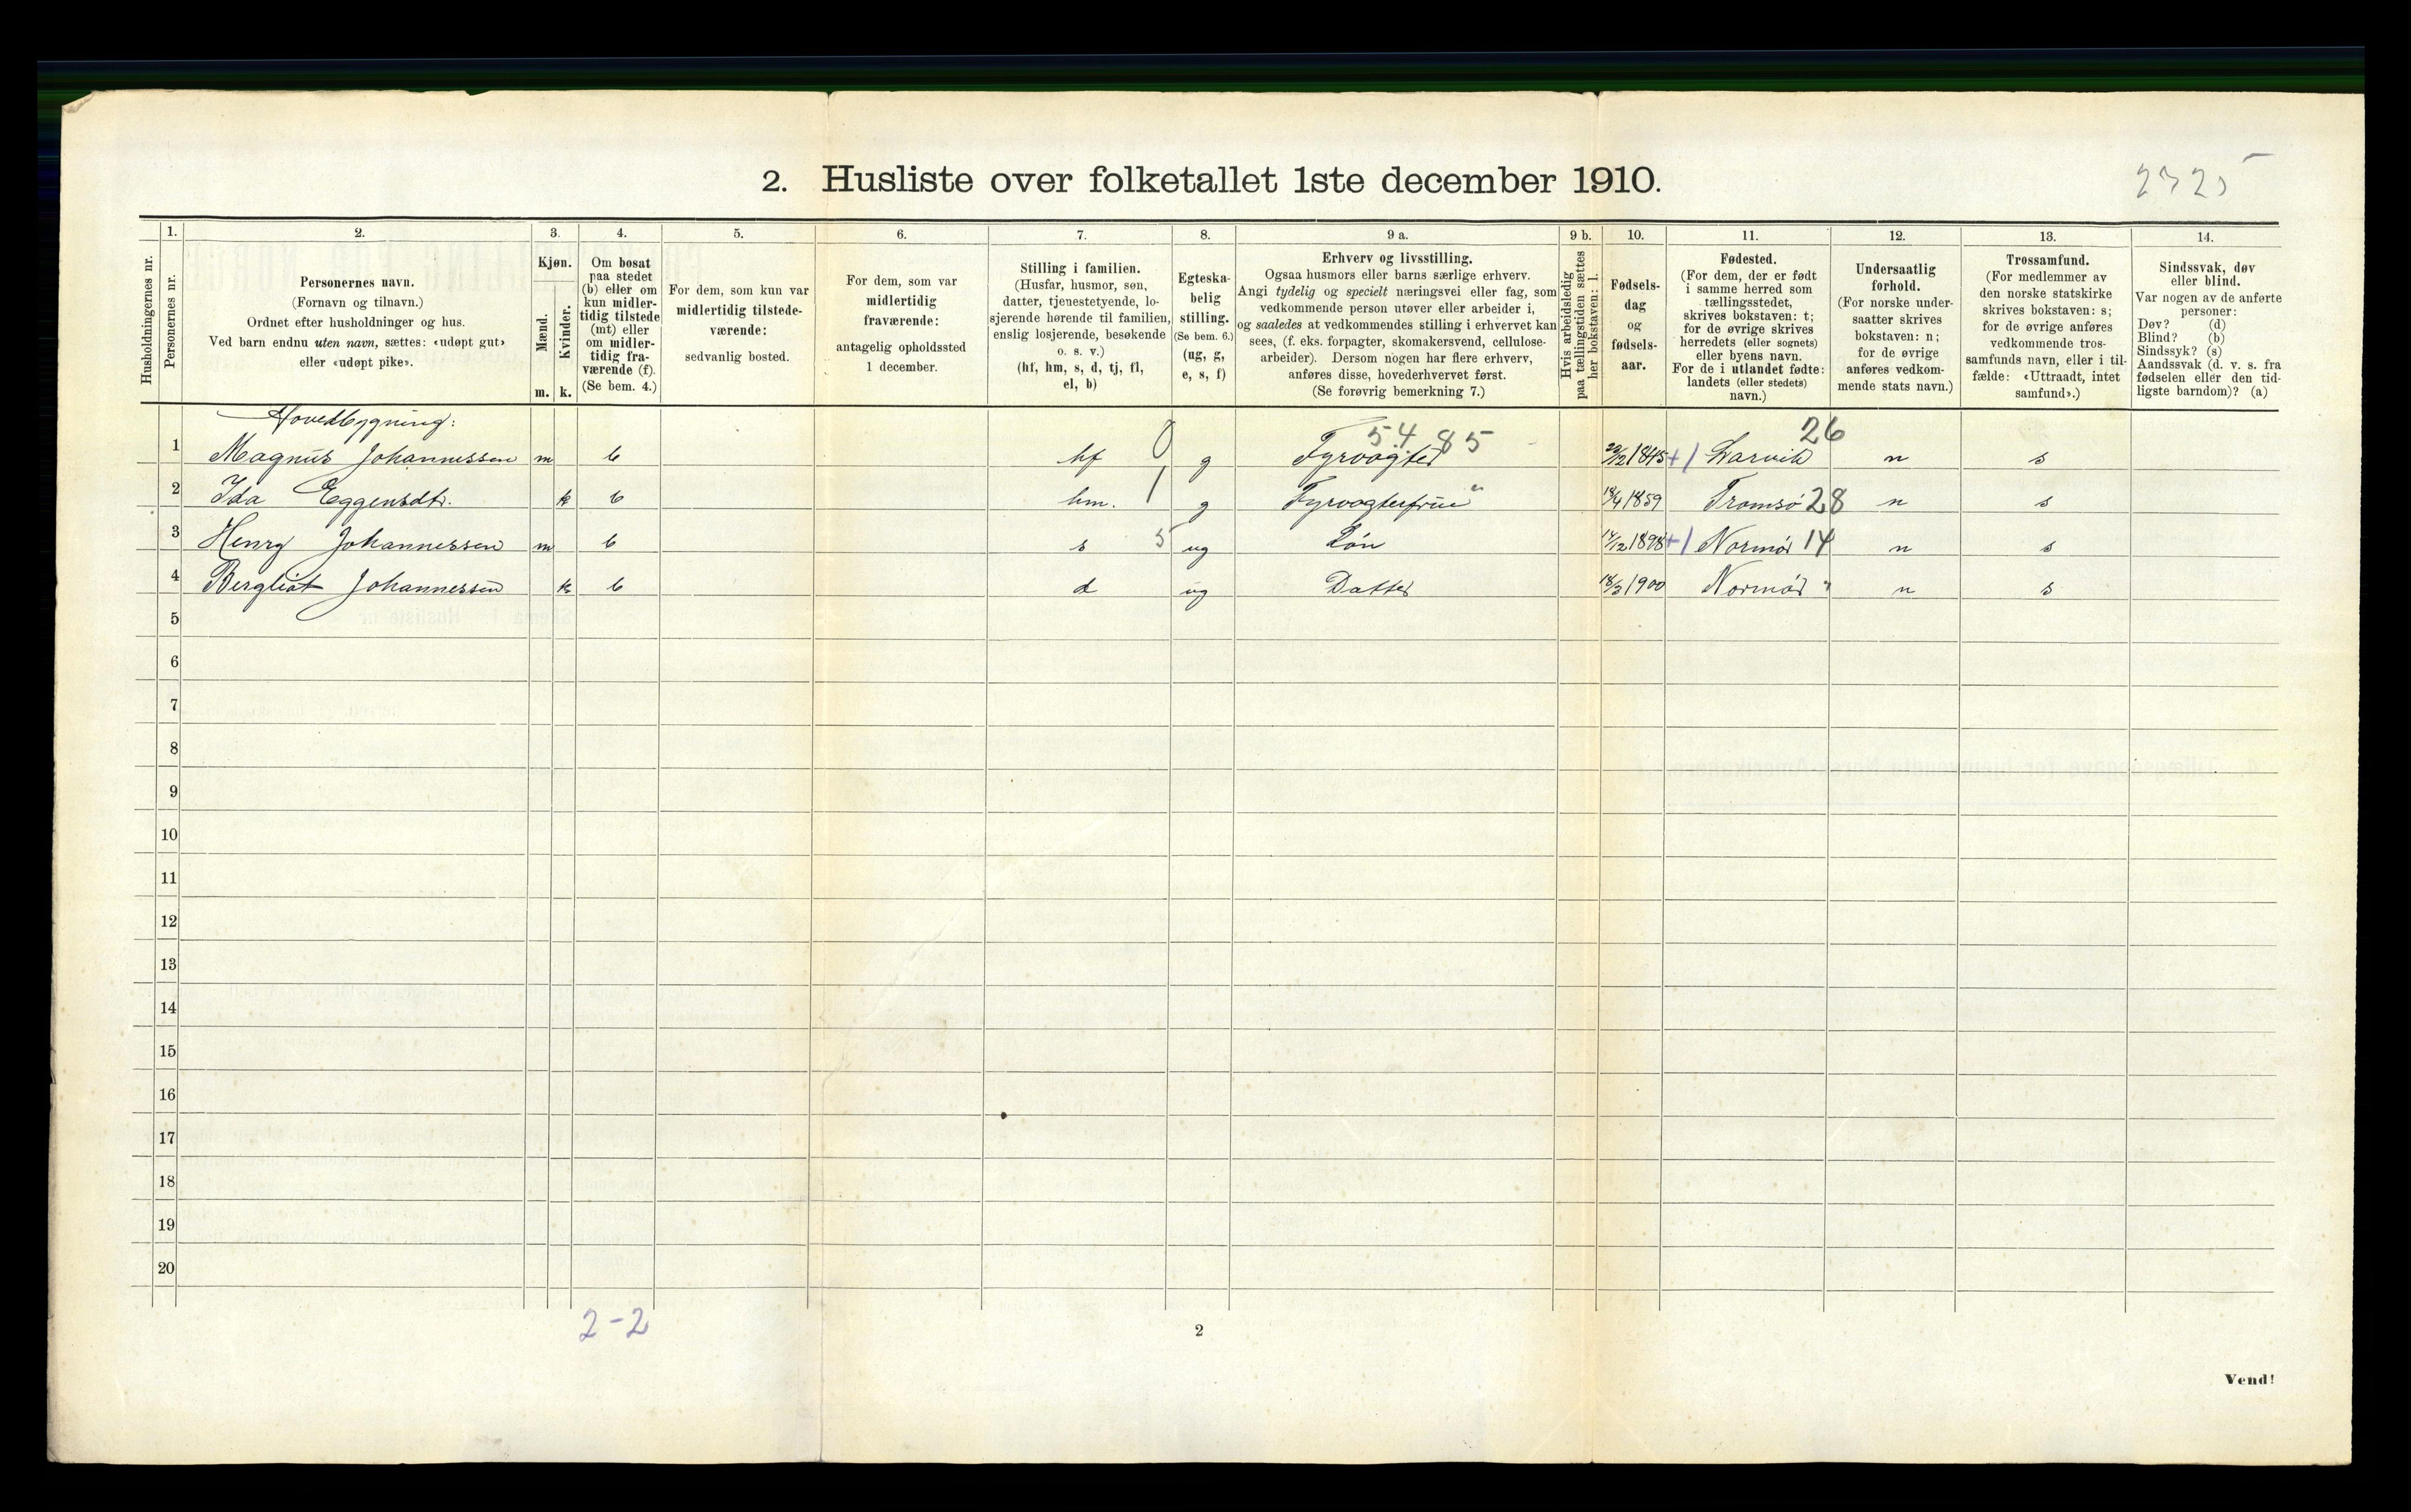 2. Husliste over folketallet 1ste december 1910.
2325
Husholdningernes nr.
1.
Personernes nr.
2.
Personernes navn.
(Fornavn og tilnavn.)
Ordnet efter husholdninger og hus.
Ved barn endnu uten navn, sættes: «udøpt gut»
eller «udøpt pike».
3.
Kjøn.
Mænd.
Kvinder.
m. k.
4.
Om bosat
paa stedet
(b) eller om
kun midler-
tidig tilstede
(mt) eller
om midler-
tidig fra-
værende (f).
(Se bem. 4.)
5.
For dem, som kun var
midlertidig tilstede-
værende:
sedvanlig bosted.
6.
For dem, som var
midlertidig
fraværende:
antagelig opholdssted
1 december.
7.
Stilling i familien.
(Husfar, husmor, søn,
datter, tjenestetyende, lo-
sjerende hørende til familien,
enslig losjerende, besøkende
o. s. v.)
(hf, hm, s, d, tj, fl,
el, b)
8.
Egteska-
belig
stilling.
(Se bem. 6.)
(ug, g,
e, s, f)
9 a.
Erhverv og livsstilling.
Ogsaa husmors eller barns særlige erhverv.
Angi tydelig og specielt næringsvei eller fag, som
vedkommende person utøver eller arbeider i,
og saaledes at vedkommendes stilling i erhvervet kan
sees, (f. eks. forpagter, skomakersvend, cellulose-
arbeider). Dersom nogen har flere erhverv,
anføres disse, hovederhvervet først.
(Se forøvrig bemerkning 7.)
9 b.
Hvis arbeidsledig
paa tællingstiden sættes
her bokstaven: l.
10.
Fødsels-
dag
og
fødsels-
aar.
11.
Fødested.
(For dem, der er født
i samme herred som
tællingsstedet,
skrives bokstaven: t;
for de øvrige skrives
herredets (eller sognets)
eller byens navn.
For de i utlandet fødte:
landets (eller stedets)
navn.)
12.
Undersaatlig
forhold.
(For norske under-
saatter skrives
bokstaven: n;
for de øvrige
anføres vedkom-
mende stats navn.)
13.
Trossamfund.
(For medlemmer av
den norske statskirke
skrives bokstaven: s;
for de øvrige anføres
vedkommende tros-
samfunds navn, eller i til-
fælde: «Uttraadt, intet
samfund».)
14.
Sindssvak, døv
eller blind.
Var nogen av de anførte
personer:
Døv? (d)
Blind? (b)
Sindssyk? (s)
Aandssvak (d. v. s. fra
fødselen eller den tid-
ligste barndom)? (a)
Hovedbygning:
1 Magnus Johannessen m b hf 0 g Fyrvogter 54 85 29/12 1845 +1 Larvik 26 n s
2 Ida Eggensdtr. k b hm. 1 g Fyrvogterfrue 18/4 1859 Tromsø 28 n s
3 Henry Johannessen m b s 5 ug Søn 17/12 1898 +1 Normør 14 n s
4 Bergliot Johannessen k b d ug Datter 18/3 1900 Normør " n s
5
6
7
8
9
10
11
12
13
14
15
16
17
18
19
20
2-2
2
Vend!